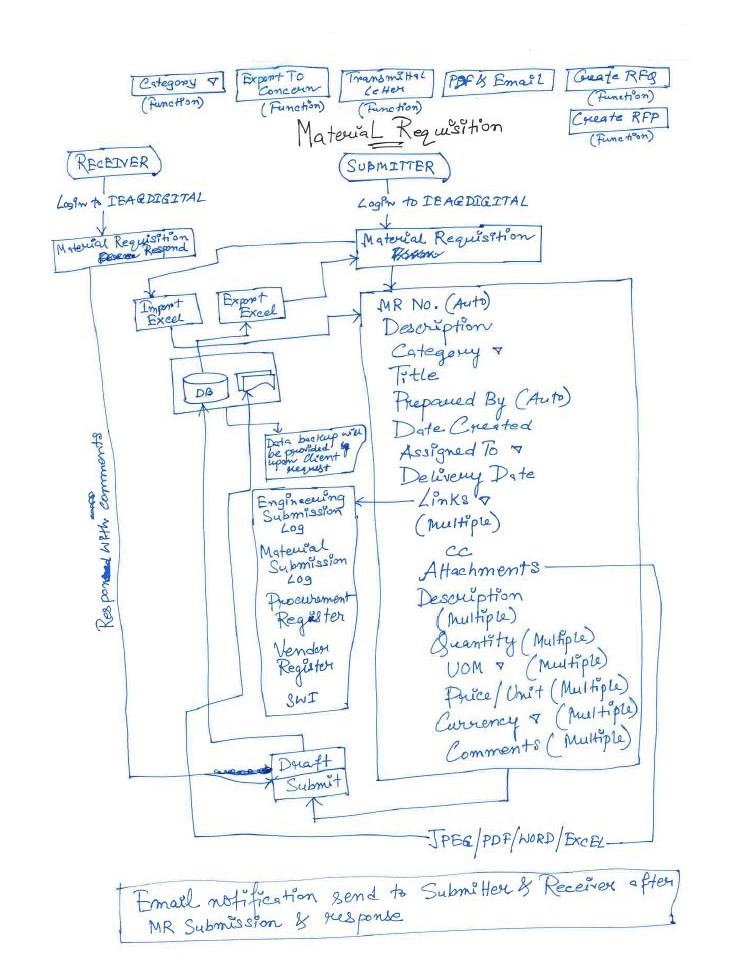 Category ▽
(Function)
Export To
Concern
(Function)
Transmittal
Letter
(Function)
PDF & Email
Create RFQ
(Function)
Create RFP
(Function)
Material Requisition
RECEIVER
SUBMITTER
Login to IEAQDIGITAL
Login to IEAQDIGITAL
Material Requisition
Respond
Material Requisition
Import
Excel
Export
Excel
DB
Data backup will
be provided
upon client
request
MR No. (Auto)
Description
Category ▽
Title
Prepared By (Auto)
Date Created
Assigned To ▽
Delivery Date
Links ▽
(Multiple)
CC
Attachments
Description
(Multiple)
Quantity (Multiple)
UOM ▽ (Multiple)
Price/Unit (Multiple)
Currency ▽ (Multiple)
Comments (Multiple)
Engineering
Submission
Log
Material
Submission
Log
Procurement
Register
Vendor
Register
SWI
With comments
Draft
Submit
JPEG/PDF/WORD/EXCEL
Email notification send to Submitter & Receiver after
MR Submission & response